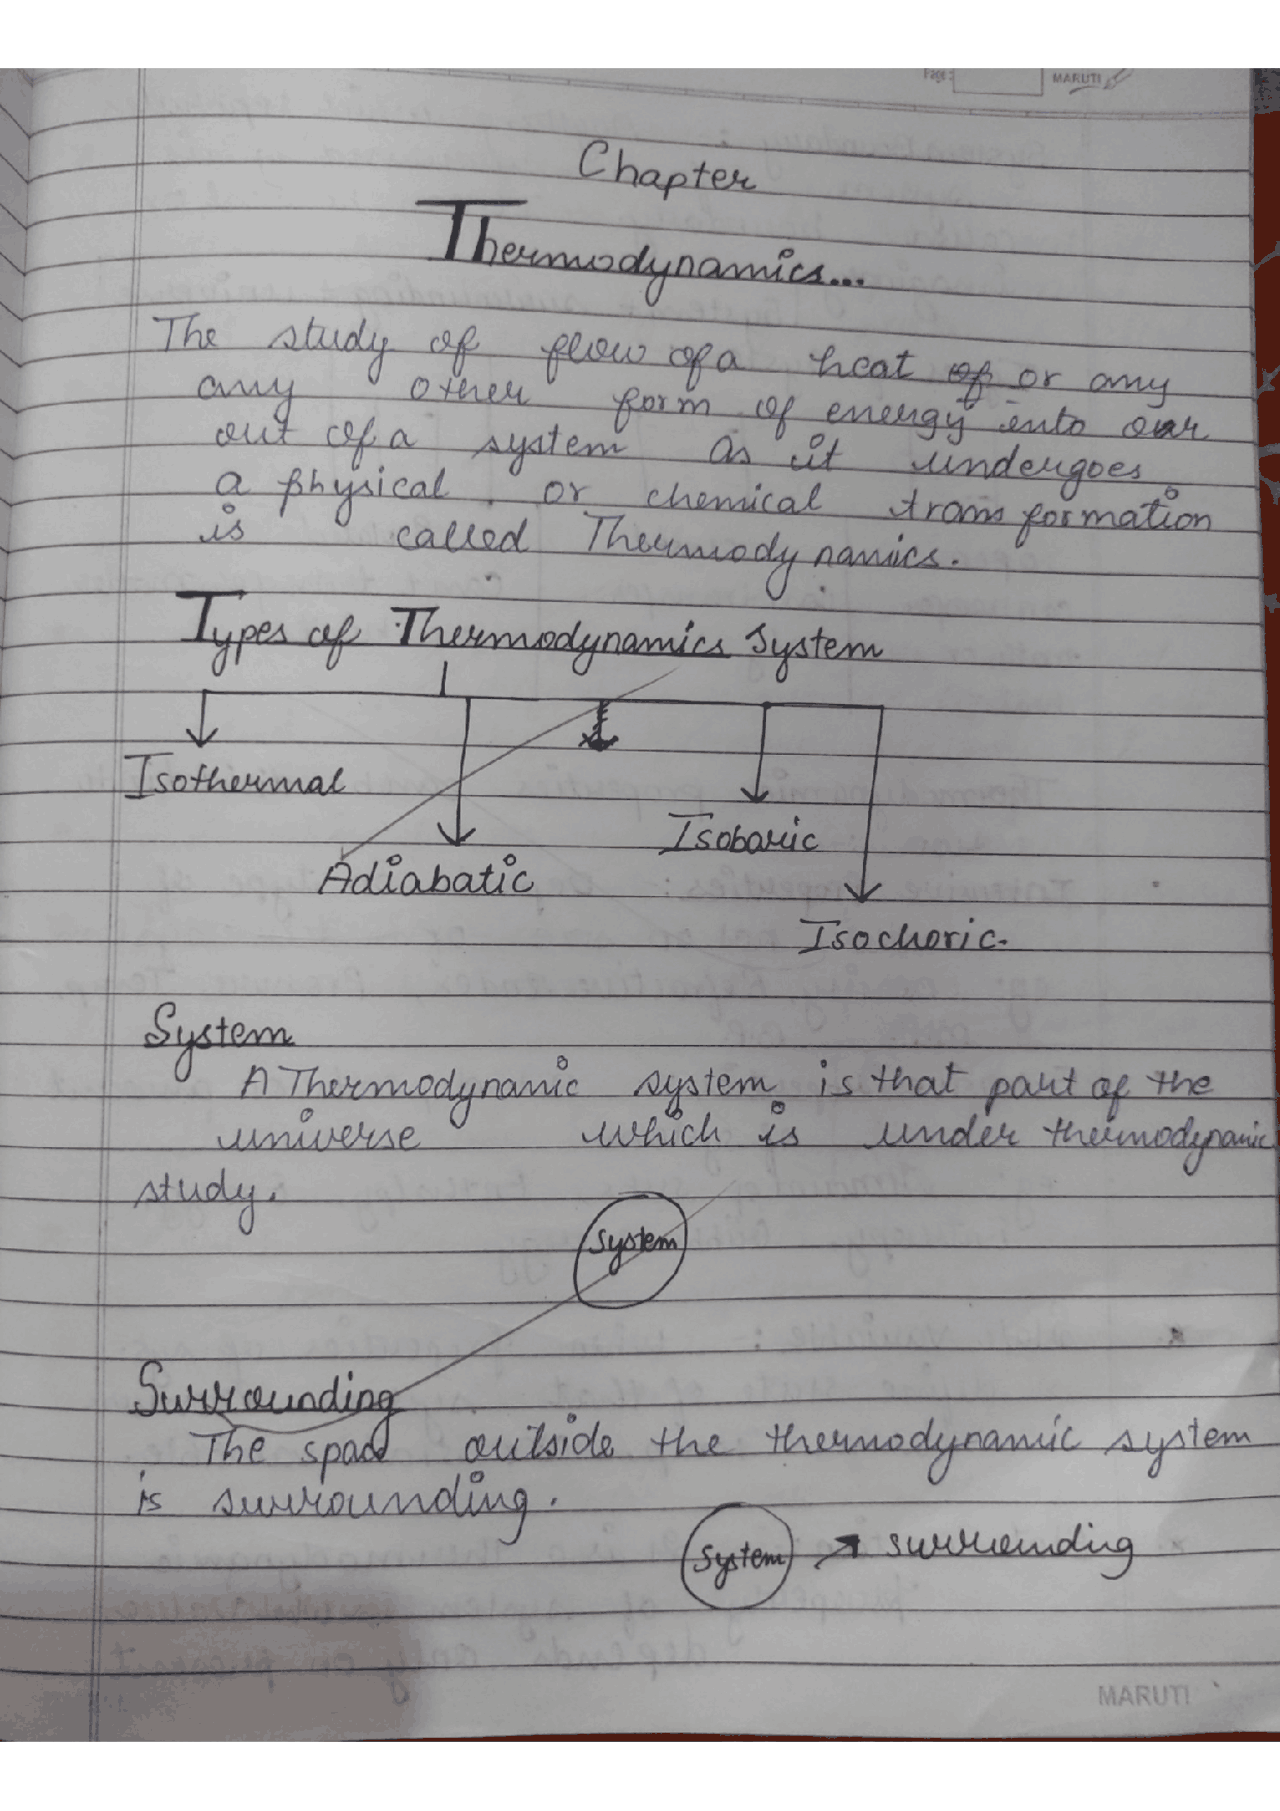 Page: MARUTI
Chapter
Thermodynamics...
The study of flow of a heat of or any
any other form of energy into our
out of a system as it undergoes
a physical or chemical transformation
is called Thermodynamics.
Types of Thermodynamics System
Isothermal
Adiabatic
Isobaric
Isochoric.
System
A Thermodynamic system is that part of the
universe which is under thermodynamic
study.
System
Surrounding
The space outside the thermodynamic system
is surrounding.
System → surrounding
MARUTI